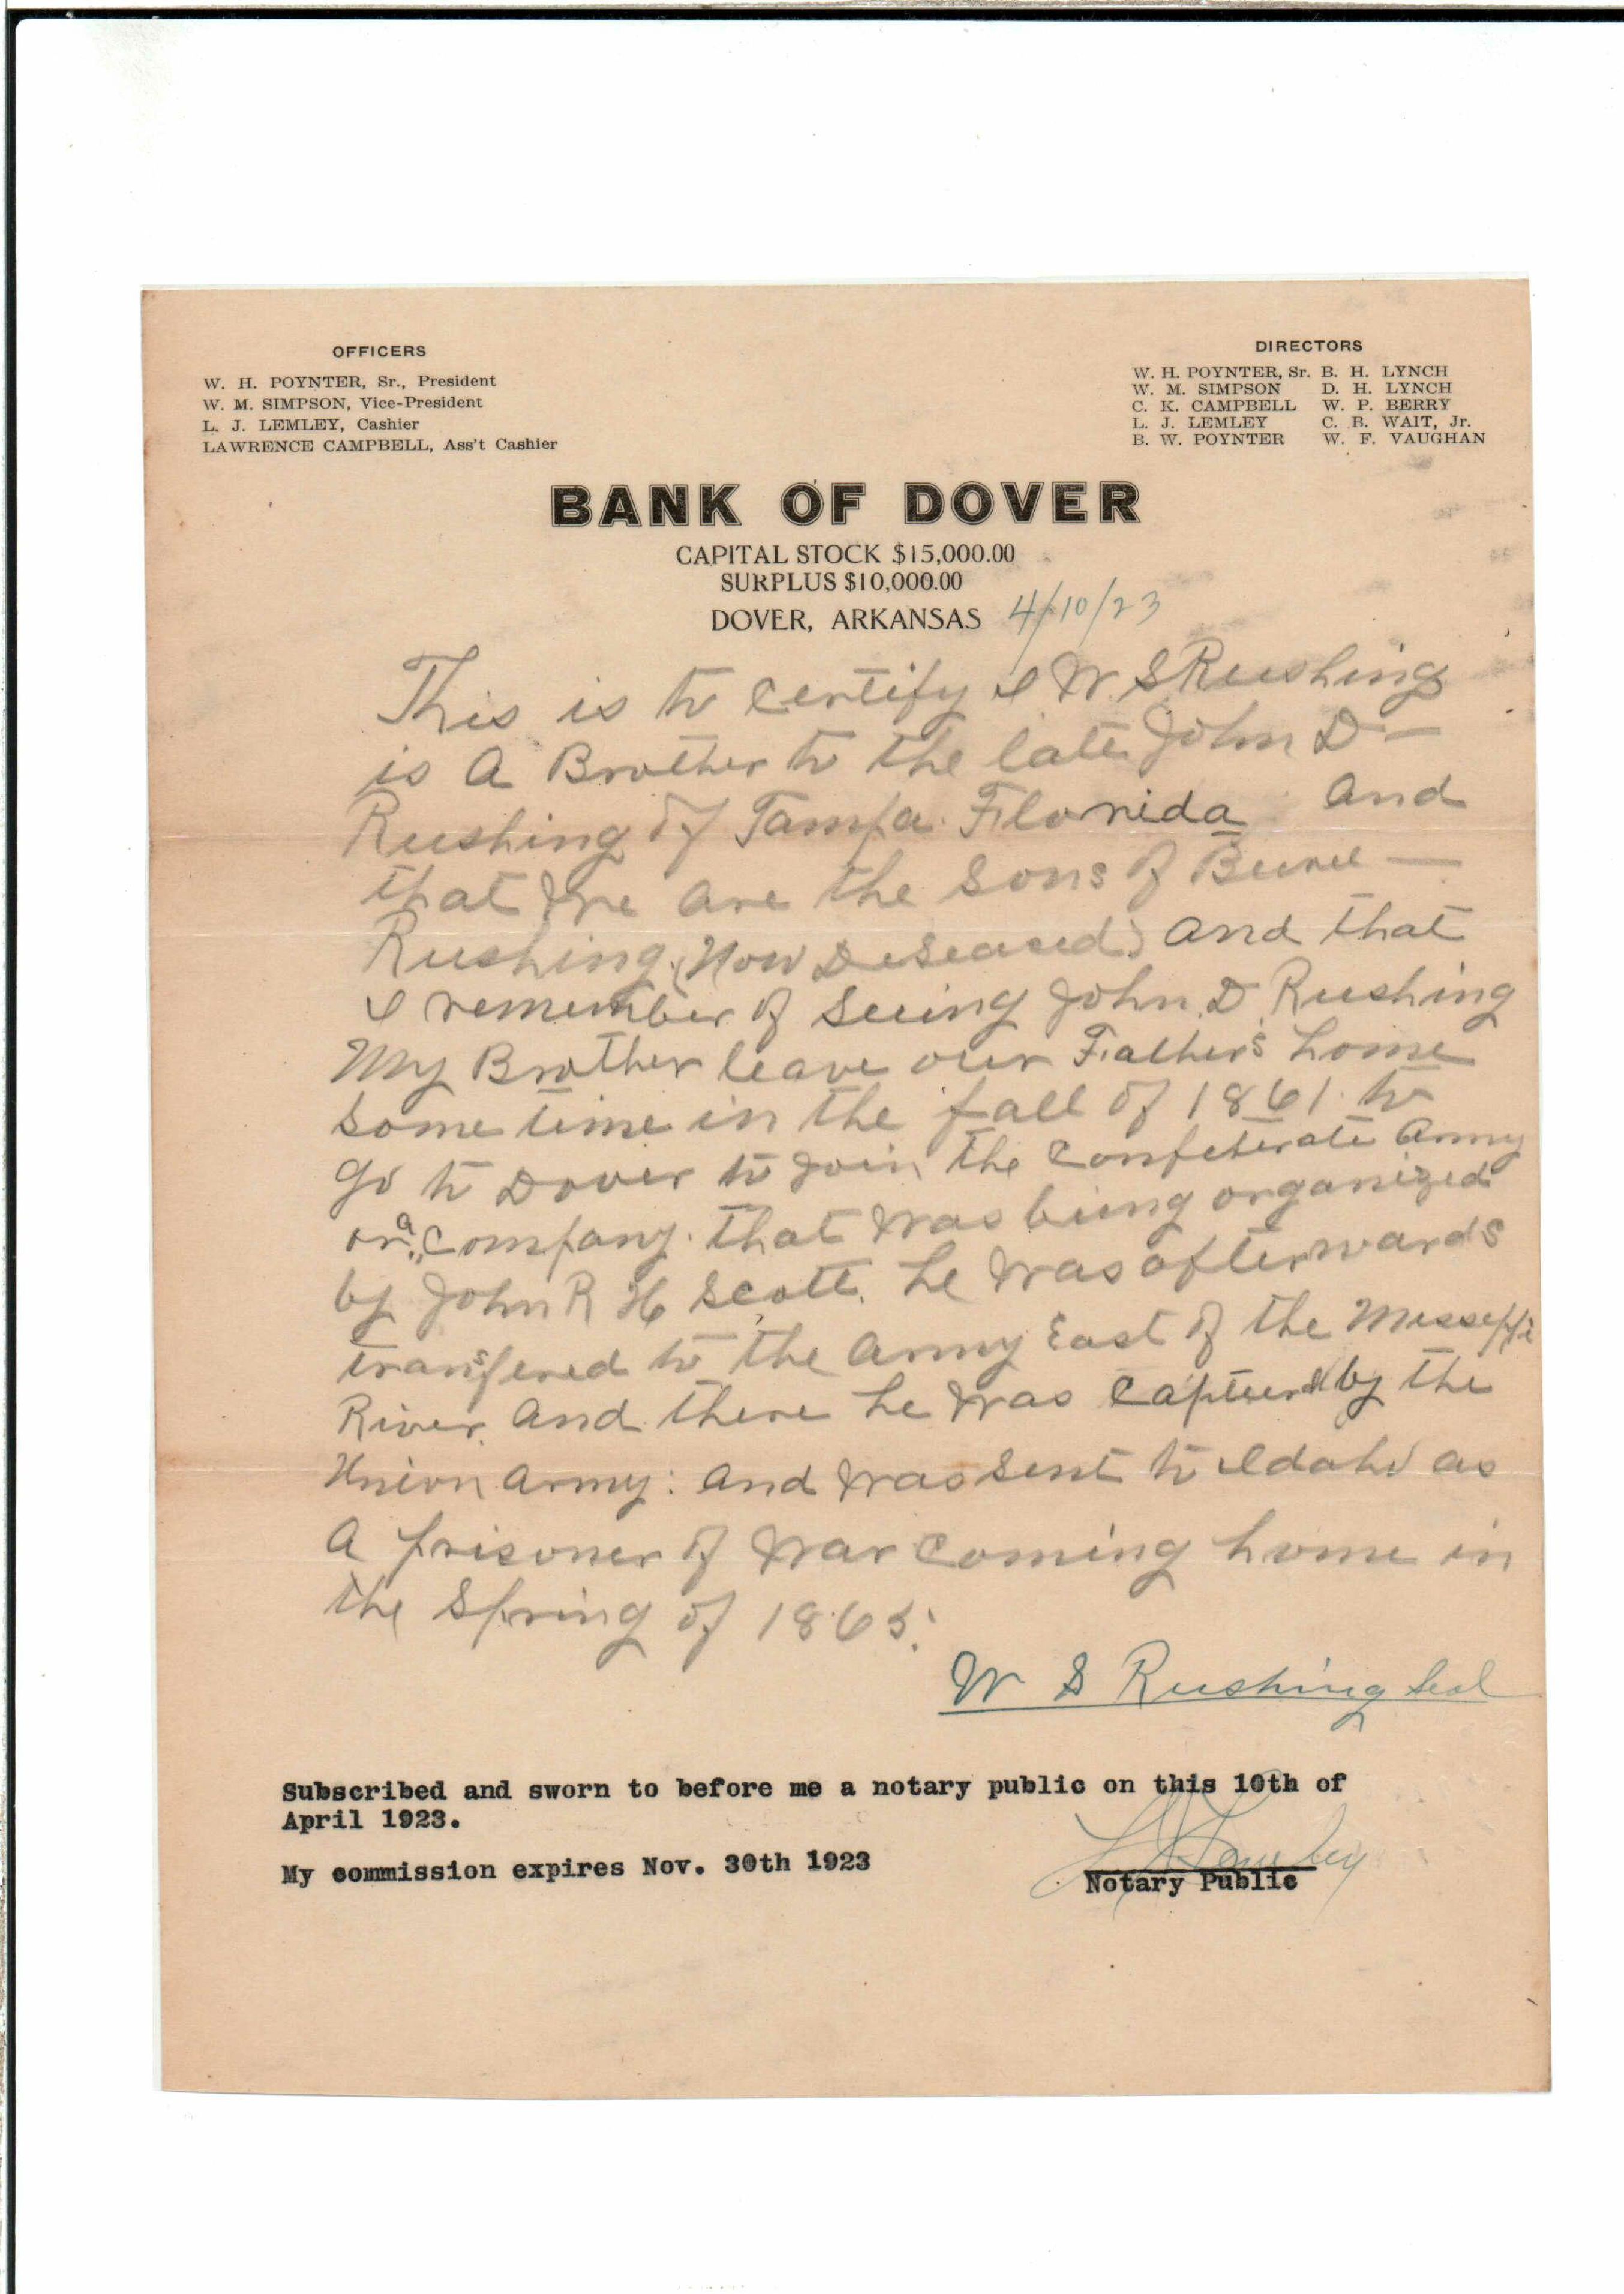 OFFICERS
W. H. POYNTER, Sr., President
W. M. SIMPSON, Vice-President
L. J. LEMLEY, Cashier
LAWRENCE CAMPBELL, Ass't Cashier
DIRECTORS
W. H. POYNTER, Sr. B. H. LYNCH
W. M. SIMPSON D. H. LYNCH
C. K. CAMPBELL W. P. BERRY
L. J. LEMLEY C. B. WAIT, Jr.
B. W. POYNTER W. F. VAUGHAN
BANK OF DOVER
CAPITAL STOCK $15,000.00
SURPLUS $10,000.00
DOVER, ARKANSAS 4/10/23
This is to certify I W. S Rushing
is A Brother to the late John D -
Rushing of Tampa. Florida and
that We are the Sons of Burel -
Rushing (Now Deseased) and that
I remember of Seeing John. D. Rushing
My Brother leave our Father's home
some time in the fall of 1861. to
go to Dover to join the Confeterate Army
or a Company. that was being organized
by John R H Scott. he was afterwards
transfered to the army East of the Misseppi
River. and there he was Captured by the
Union army: and was sent to Idaho as
A prisoner of War Coming home in
the Spring of 1865.
W S Rushing Seal
Subscribed and sworn to before me a notary public on this 10th of
April 1923.
L J Lemley
My commission expires Nov. 30th 1923
Notary Public